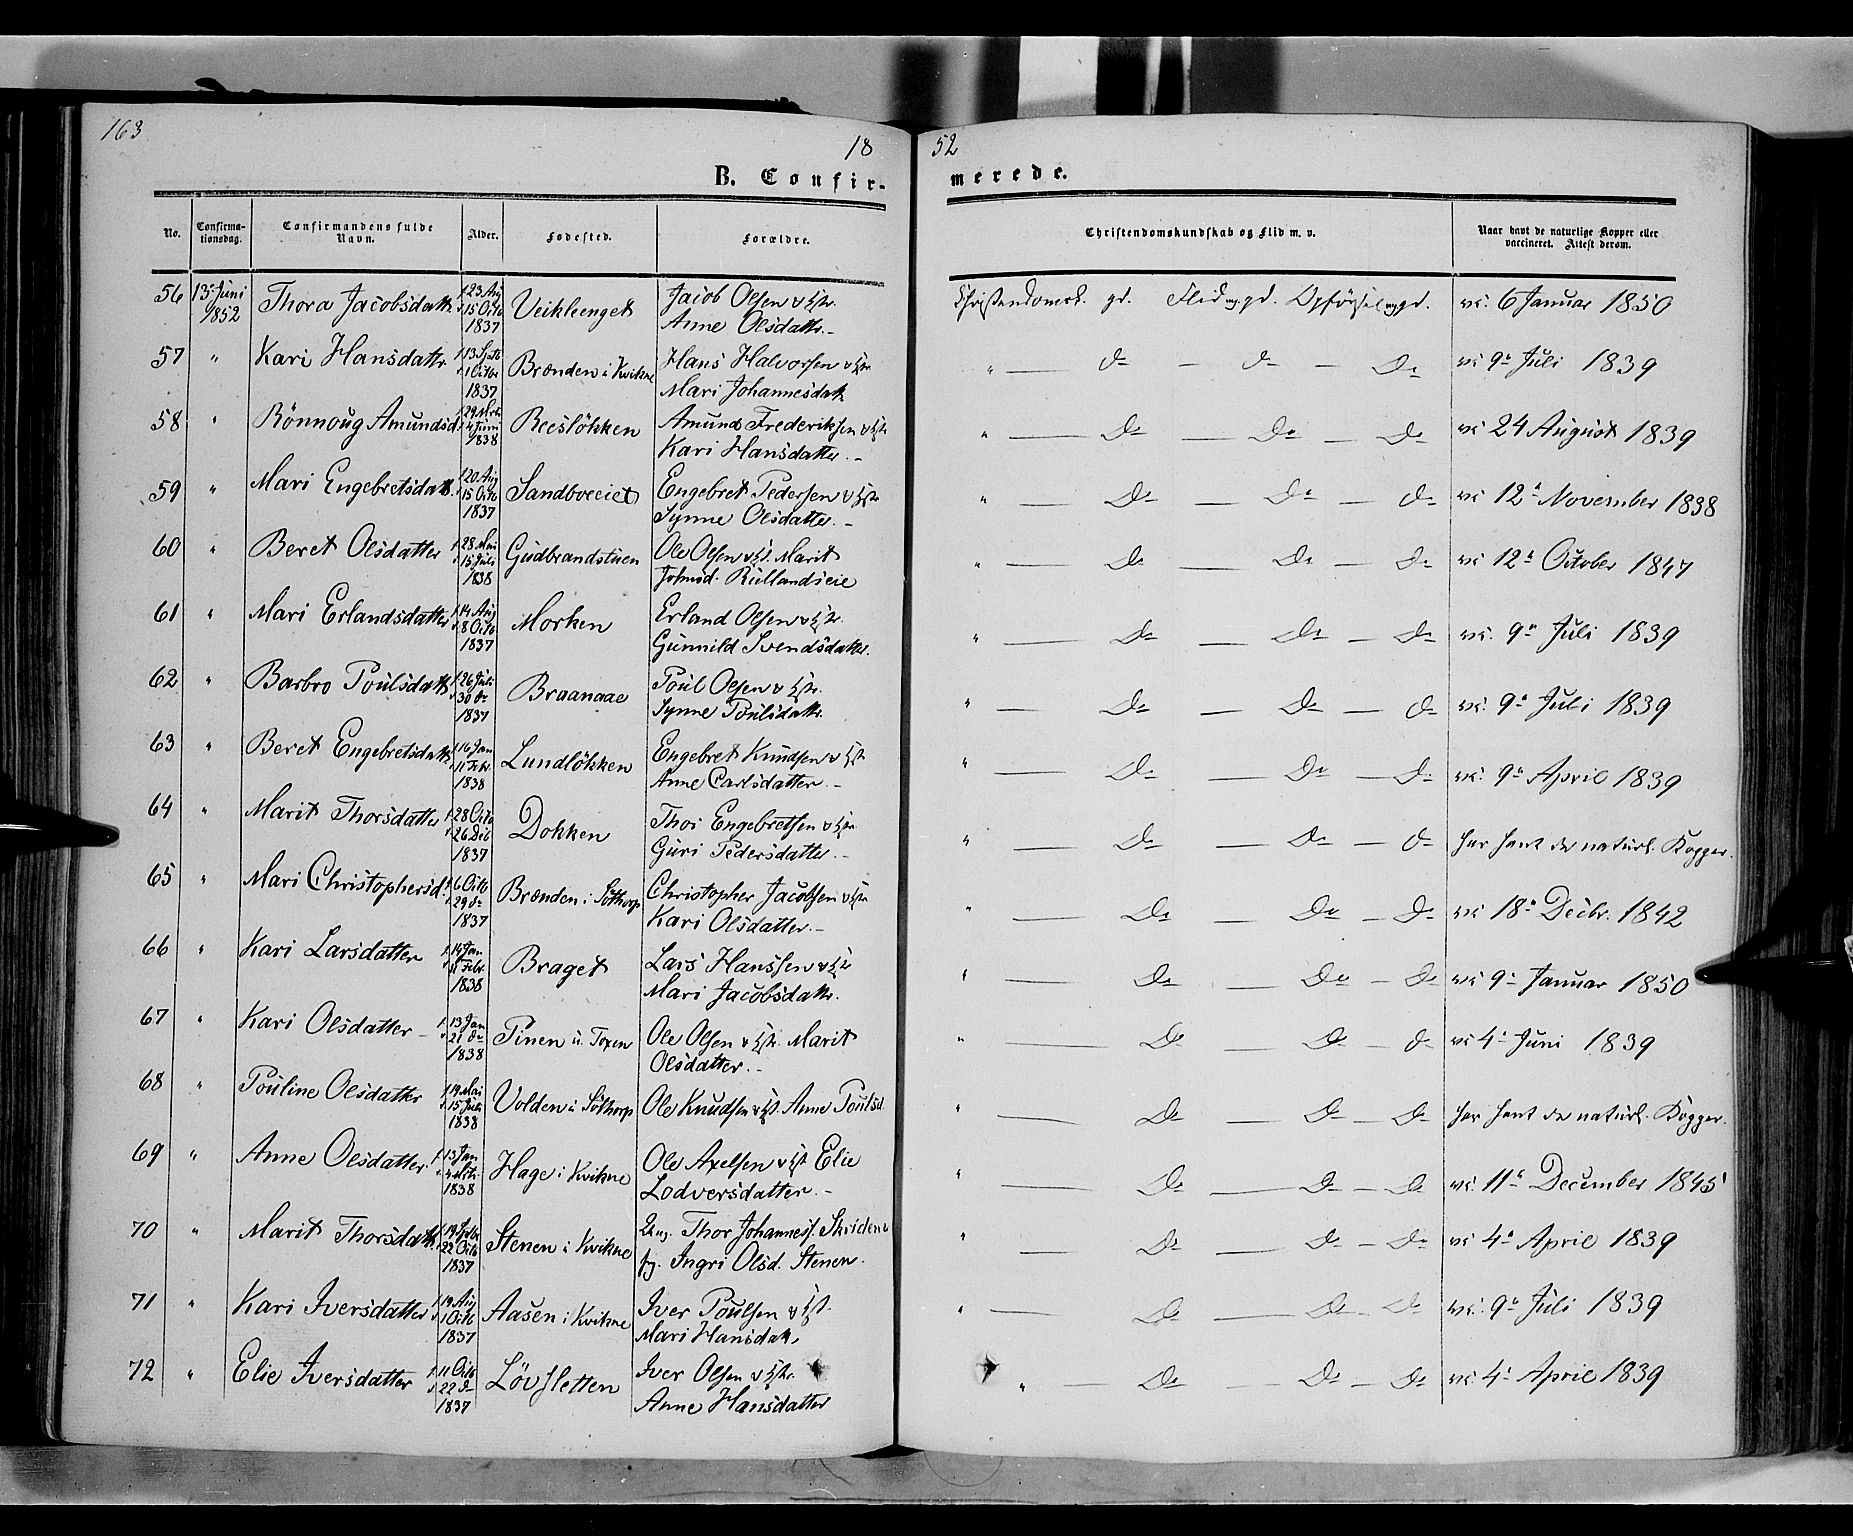 163
18 52
B. Confir- merede.
No. Confirma-tionsdag. Confirmandens fulde Navn. Alder. Fødested. Forældre. Christendomskundskab og Flid m. v. Naar havt de naturlige Kopper eller vaccineret. Attest derom.
56 13 Juni 1852 Thora Jacobsdattr f. 23 Aug d. 15 Octb 1837 Veiklenget Jacob Olsen & Hstr. Anne Olsdattr. Christendomsk. gd. Flid mgd. Opförsel mgd. vc. 6 Januar 1850
57 " Kari Hansdattr 1837 Brænden i Kvikne Hans Halvorsen & Hstr Mari Johannesdatt " Do Do Do vc 9de Juli 1839
58 " Rönnoug Amundsd. 1838 Reeslökken Amund Frederiksen & Hstr Kari Hansdatter " Do Do Do vc 24 August 1839
59 " Mari Engebretsdatt. f. 20 Aug d. 15 Octb 1837 Sandboeeiet Engebret Pedersen & Hstr Synne Olsdatter " Do Do Do vc 12te November 1838
60 " Beret Olsdatter f. 28 Mai d. 15 Juli 1838 Gudbrandstuen Ole Olsen & Hst. Marit Johnsd. Rullandseie " Do Do Do vc 12te October 1847
61 " Mari Erlandsdatter f. 14 Aug d. 8 Octb 1837 Morken Erland Olsen & Hstr. Gunnild Svendsdatter. " Do Do Do vc. 9de Juli 1839
62 " Barbro Poulsdatt f. 26 Juli d. 30 do 1837 Braanaae Poul Olsen & Hstr. Synne Poulsdattr. " Do Do Do vc. 9de Juli 1839
63 " Beret Engebretsdatt f. 16 Jan d. 11 Febr 1838 Lundlökken Engebret Knudsen & Hstr Anne Carlsdatter " Do Do Do vc. 9de April 1839
64 " Marit Thorsdatter f. 28 Octb d. 26 Deb 1837 Dokken Thor Engebretsen & Hstr Guri Pedersdatter " Do Do Do har havt de naturl. Kopper.
65 " Mari Christophersd. f. 6 Octb d. 29 do 1837 Brænden i Söthorp Christopher Jacobsen & Hstr Kari Olsdatter " Do Do Do vc 18de Decbr. 1842
66 " Kari Larsdatter f. 14 Jan d. 11 Febr. 1838 Braget Lars Hanssen & Hstr Mari Jacobsdattr. " Do Do Do vc 9de Januar 1850
67 " Kari Olsdatter f. 13 Jan d. 21 do 1838 Pinen u. Toxen Ole Olsen & Hstr. Marit Olsdatter " Do Do Do vc 4de Juni 1839
68 " Pouline Olsdatter f. 19 Mai d. 15 Juli 1838 Volden i Söthorp Ole Knudsen & Hst. Anne Poulsd. " Do Do Do har havt de naturl. Kopper.
69 " Anne Olsdatter f. 13 Jan 1838 Hage i Kvikne Ole Axelsen & Hst Elie Lodversdatter " Do Do Do vc. 11te December 1845
70 " Marit Thorsdatt. 22 Octb 1837 Stenen i Kvikne Thor Johanness. Skriden & Ingri Olsd. Stenen. " Do Do Do vc 4de April 1839
71 " Kari Iversdatter f. 19 Aug d. 1 Octb 1837 Aasen i Kvikne Iver Poulsen & Hst. Mari Hansdatt " Do Do Do vc. 9de Juli 1839
72 " Elie Iversdatter f. 11 Octb d. 22 do 1837 Lövsletten Iver Olsen & Hstr. Anne Hansdatter " Do Do Do vc. 4de April 1839